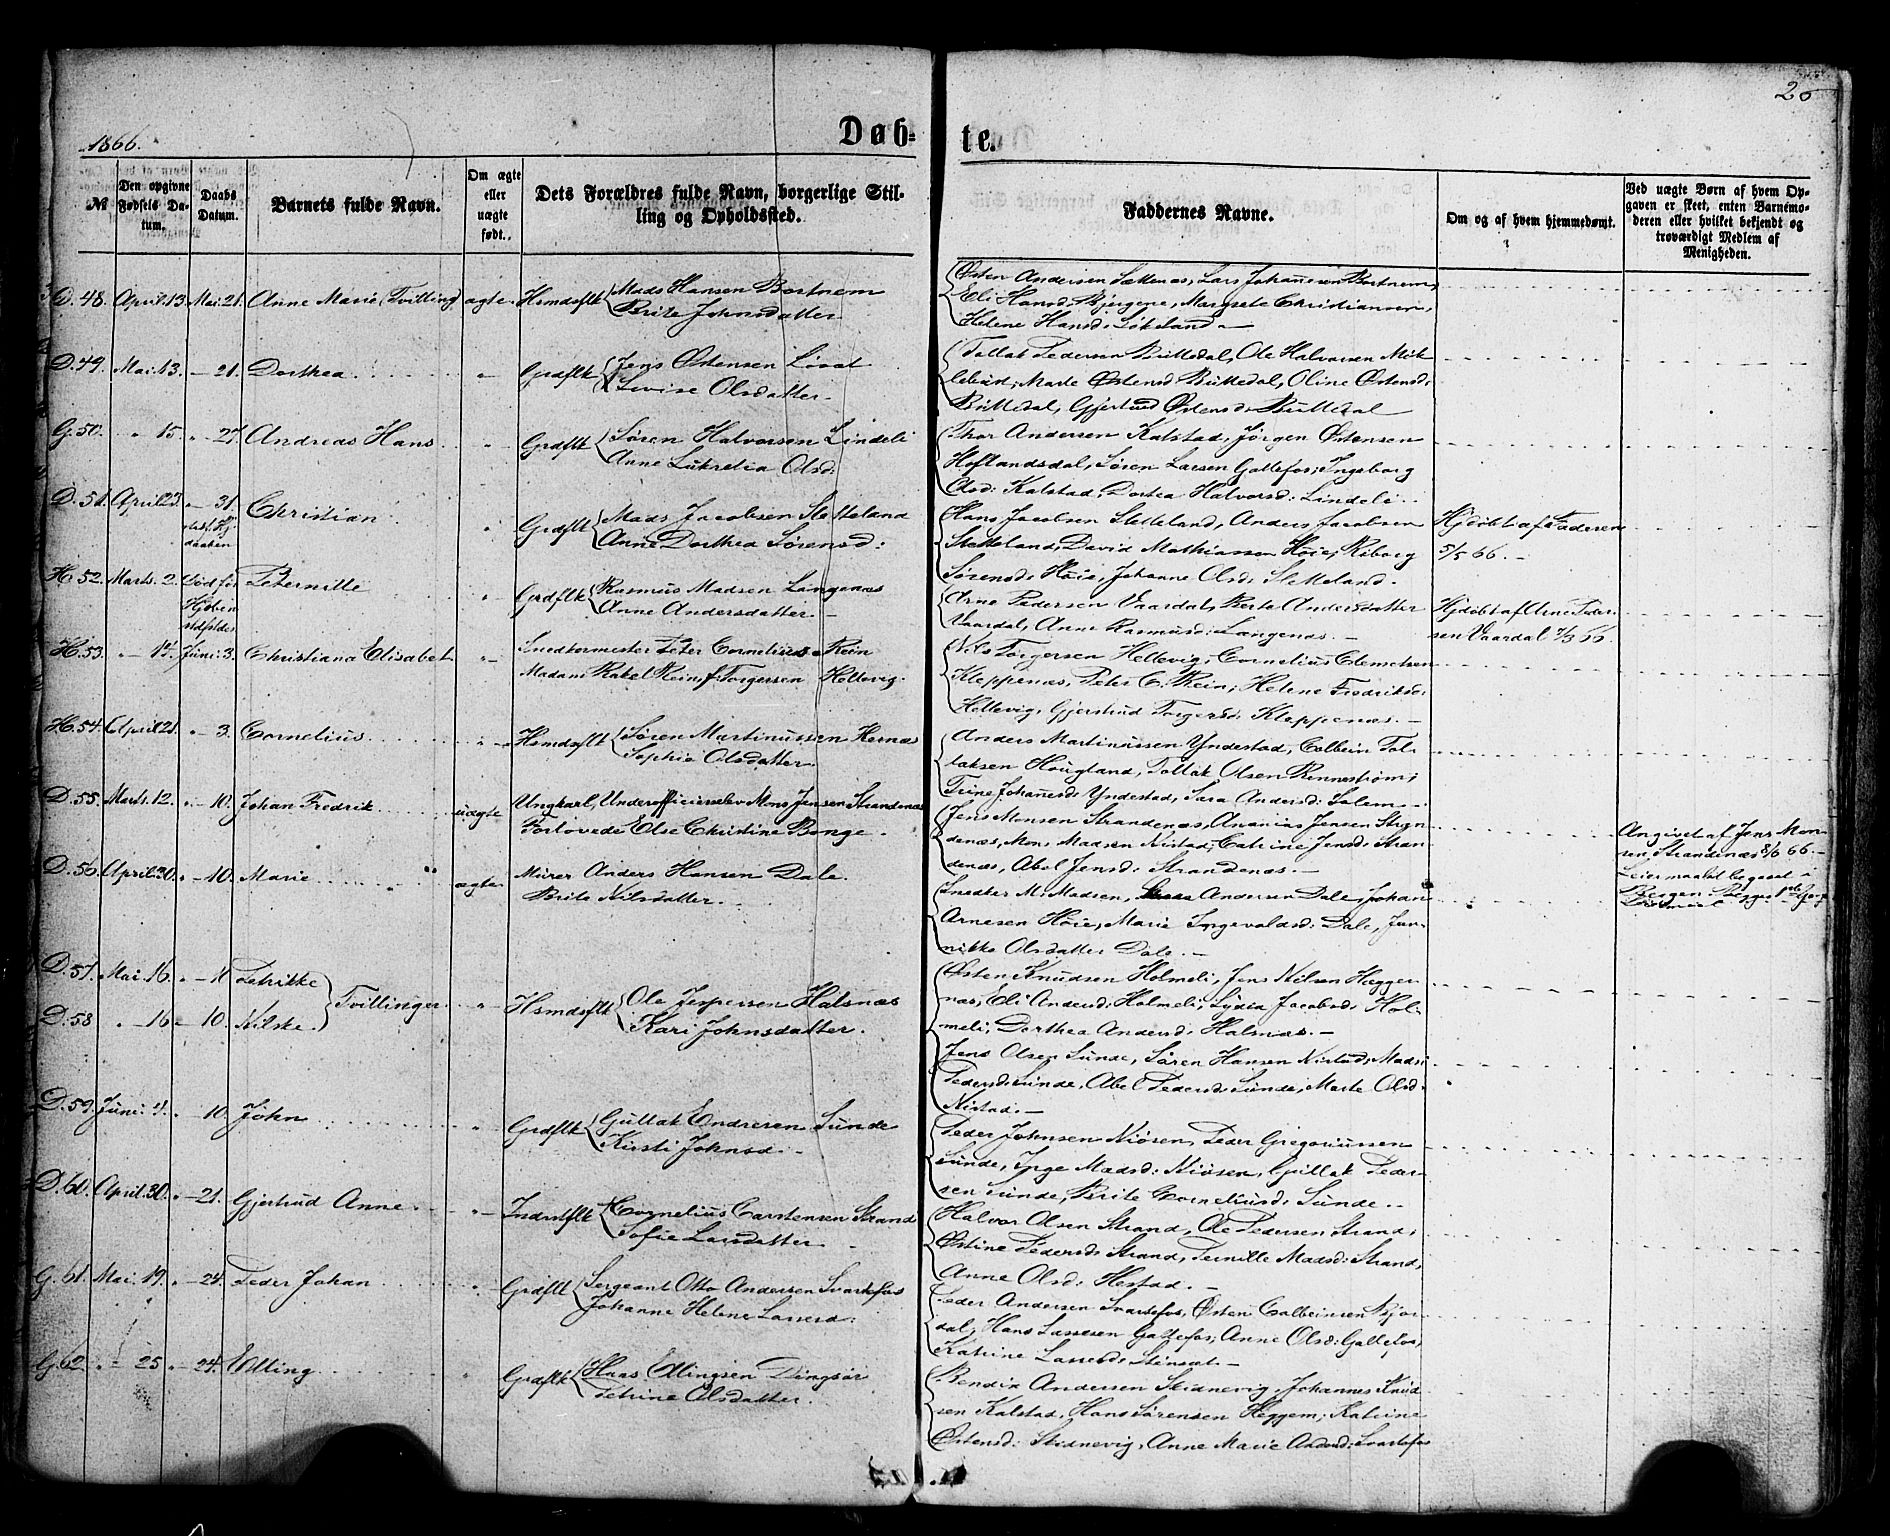 20
1866.
Døb-
te.
№
Den opgivne Fødsels Datum.
Daabs Datum.
Barnets fulde Navn.
Om ægte eller uægte født.
Dets Forældres fulde Navn, borgerlige Stilling og Opholdssted.
Faddernes Navne.
Om og af hvem hjemmedøbt.
Ved uægte Børn af hvem Opgaven er skeet, enten Barnemoderen eller hvilket bekjendt og troværdigt Medlem af Menigheden.
D. 48. April 13. Mai 21. Anne Marie, Tvilling ægte Hsmdsflk Mads Hansen Bortnem
Brite Johnsdatter
Østen Andersen Sættenæs, Lars Johannesen Bortnem,
Eli Hansd: Bjergene, Margrete Christiansen,
Helene Hansd: Løkeland. —
D. 49. Mai 13. — 21. Dorthea " Grdflk Jens Østensen Løvat
Lovise Olsdatter.
Tollak Pedersen Büttedal, Ole Halvorsen Mük-
lebüst, Marte Østensd: Büttedal, Oline Østensd:
Büttedal, Gjertrud Østensd: Büttedal
G. 50. " 15 " 27. Andreas Hans " Grdflk Søren Halvorsen Lindeli
Anne Lukretia Olsd:
Thor Andersen Kalstad, Jørgen Østensen
Hoflandsdal, Søren Larsen Gattefos, Ingeborg
Olsd: Kalstad, Dortea Halvorsd: Lindeli.
D. 51. April 23. " 31. Christian " Grdflk Mads Jacobsen Sletteland
Anne Dorthea Sørensd:
Hans Jacobsen Sletteland, Anders Jacobsen
Sletteland, David Mathiassen Høie, Riborg
Sørensd: Høie, Johanne Olsd: Sletteland.
Hjdøbt af Faderen
5/5 66. —
H. 52. Marts 2. Død før
Peternille " Grdflk Rasmus Madsen Langenæs
Anne Andersdatter —
Arne Pedersen Vaardal, Berte Andersdatter
Vaardal, Anne Rasmusd: Langenæs. —
Hjdøbt af Arne Peder-
sen Vaardal 7/3 66.
H. 53. " 14. Juni 3. Christiana Elisabet " Snedkermester Peter Cornelius Rein
Madam Rakel Rein f. Torgersen Hellevig.
Nils Torgersen Hellevig, Cornelius Clemetsen
Kleppenæs, Peter C. Rein, Helene Fredriksd:
Hellevig, Gjertrud Torgersd: Kleppenæs. —
H. 54. April 21. " 3. Cornelius " Hsmdsflk Søren Martinussen Hernæs
Sophie Olsdatter.
Anders Martinussen Yndestad, Colbein Tol-
laksen Hougland, Tollak Olsen Rennestrøm,
Trine Johannesd: Yndestad, Sara Andersd: Salem —
D. 55. Marts 12. " 10. Johan Fredrik uægte Ungkarl, Underofficierselev Mons Jensen Strandenæs
Forlovede Else Christine Bonge.
Jens Monsen Strandenæs, Ananias Jensen Stran-
denæs, Mons Madsen Nistad, Catrine Jensd: Stran-
denæs, Abel Jensd: Strandenæs. —
Angivet af Jens Mon-
sen, Strandenæs 8/6 66. —
Leiermaalet begaaet i
Bergen. Begges 1ste
D. 56. April 30. " 10. Marie ægte Mürer Anders Hansen Dale.
Brite Nilsdatter.
Snedker M. Madsen, Andersen Dale, Johan
Arnesen Høie, Marie Ingevaldsd: Dale, Jan-
nikke Olsdatter Dale. —
D. 57. Mai 16. " 11 Petrikke
D. 58 " 16 " 10. Nilske. Tvillinger " Hsmdsflk Ole Jespersen Halsnæs
Kari Johnsdatter.
Østen Knudsen Holmeli, Jens Nilsen Hægge-
næs, Eli Andersd: Holmeli, Lydia Jacobsd: Hol-
meli, Dorthea Andersd: Halsnæs. —
Jens Olsen Sunde, Søren Hansen Nistad, Mads
Pedersd: Sunde, Abel Pedersd: Sunde, Marte Olsd:
Nistad. —
D. 59. Juni 4. " 10. John " Grdflk Gullak Endresen Sunde
Kirsti Johnsd. —
Peder Johnsen Niøsen, Peder Gregoriussen
Sunde, Inge Madsd: Niøsen, Gullak Peder-
sen Sunde, Brite Corneliusd: Sunde.
D. 60. April 30. " 21. Gjertrud Anne " Indrstflk Cornelius Carstensen Strand
Sofie Larsdatter
Halvor Olsen Strand, Ole Pedersen Strand,
Østine Pedersd: Strand, Pernille Madsd: Strand,
Anne Olsd: Hestad. —
G. 61. Mai 19. " 24. Peder Johan " Grdflk Sergeant Otto Andersen Svartefos
Johanne Helene Lassesd:
Peder Andersen Svartefos, Østen Colbeinsen Aspe-
dal, Hans Lassesen Gattefos, Anne Olsd: Gattefos,
Katrine Lassesd: Stensæt. —
G. 62 " 25 " 24. Elling " Grdflk Hans Ellingsen Dingsør
Petrine Olsdatter.
Bendix Andersen Skidnevig, Johannes Knüd-
sen Kalstad, Hans Sørensen Heggem, Katrine
Østensd: Skidnevig, Anne Marie Andersd: Svartefos